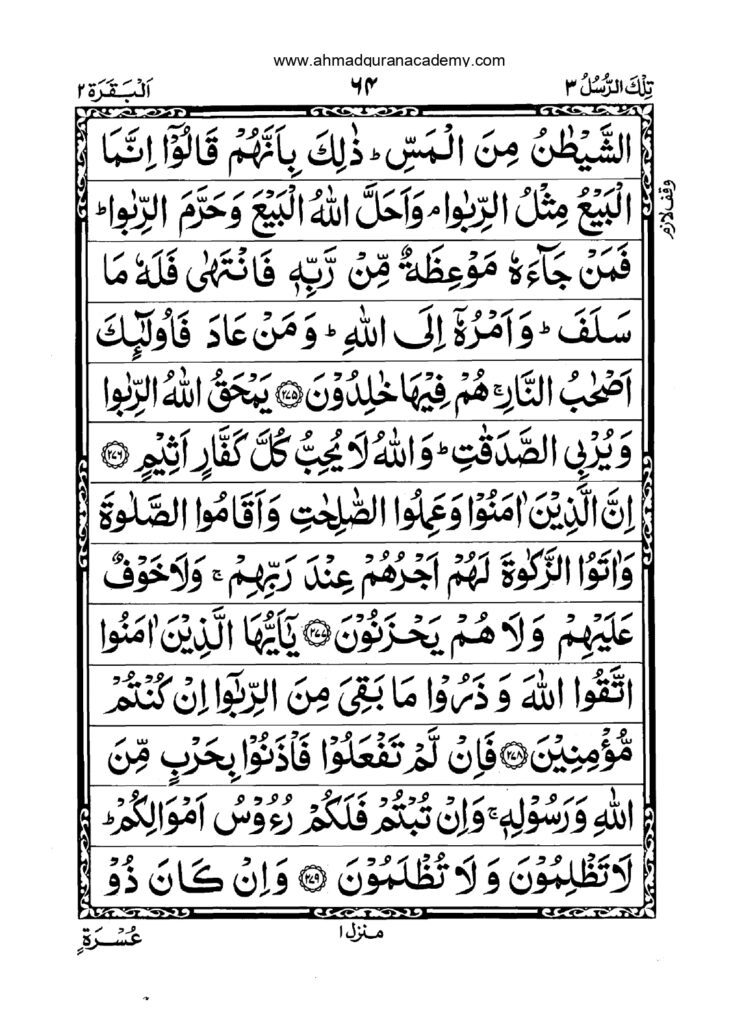 www.ahmadquranacademy.com
تِلْكَ الرُّسُلُ ٣ ٦٤ اَلْبَقَرَة ٢
الشَّيْطٰنُ مِنَ الْمَسِّ ؕ ذٰلِكَ بِاَنَّهُمْ قَالُوْۤا اِنَّمَا
الْبَيْعُ مِثْلُ الرِّبٰوا ۘ وَاَحَلَّ اللهُ الْبَيْعَ وَحَرَّمَ الرِّبٰوا ؕ
وقف لازم
فَمَنْ جَآءَهٗ مَوْعِظَةٌ مِّنْ رَّبِّهٖ فَانْتَهٰى فَلَهٗ مَا
سَلَفَ ؕ وَاَمْرُهٗۤ اِلَى اللهِ ؕ وَمَنْ عَادَ فَاُولٰٓئِكَ
اَصْحٰبُ النَّارِ ۚ هُمْ فِيْهَا خٰلِدُوْنَ ﴿٢٧٥﴾ يَمْحَقُ اللهُ الرِّبٰوا
وَيُرْبِى الصَّدَقٰتِ ؕ وَاللهُ لَا يُحِبُّ كُلَّ كَفَّارٍ اَثِيْمٍ ﴿٢٧٦﴾
اِنَّ الَّذِيْنَ اٰمَنُوْا وَعَمِلُوا الصّٰلِحٰتِ وَاَقَامُوا الصَّلٰوةَ
وَاٰتَوُا الزَّكٰوةَ لَهُمْ اَجْرُهُمْ عِنْدَ رَبِّهِمْ ۚ وَلَا خَوْفٌ
عَلَيْهِمْ وَلَا هُمْ يَحْزَنُوْنَ ﴿٢٧٧﴾ يٰۤاَيُّهَا الَّذِيْنَ اٰمَنُوا
اتَّقُوا اللهَ وَذَرُوْا مَا بَقِىَ مِنَ الرِّبٰۤوا اِنْ كُنْتُمْ
مُّؤْمِنِيْنَ ﴿٢٧٨﴾ فَاِنْ لَّمْ تَفْعَلُوْا فَاْذَنُوْا بِحَرْبٍ مِّنَ
اللهِ وَرَسُوْلِهٖ ۚ وَاِنْ تُبْتُمْ فَلَكُمْ رُءُوْسُ اَمْوَالِكُمْ ۚ
لَا تَظْلِمُوْنَ وَلَا تُظْلَمُوْنَ ﴿٢٧٩﴾ وَاِنْ كَانَ ذُوْ
منزل ١
عُسْرَةٍ